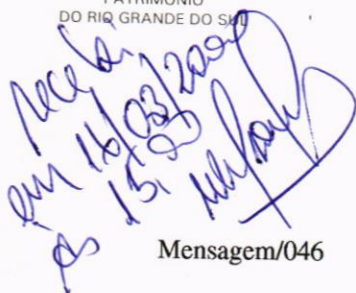 PATRIMÔNIO
DO RIO GRANDE DO SUL
recebi
em 16/03/2009
às 15:
Mensagem/046